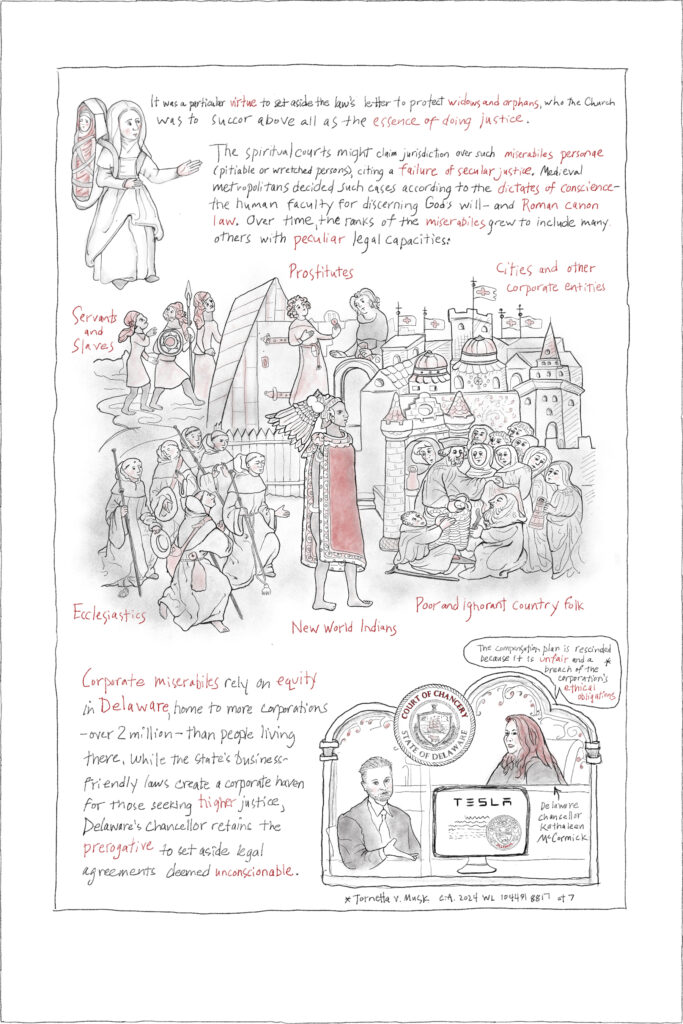 It was a particular virtue to set aside the law's letter to protect widows and orphans, who the Church
was to succor above all as the essence of doing justice.
The spiritual courts might claim jurisdiction over such miserabiles personae
(pitiable or wretched persons), citing a failure of secular justice. Medieval
metropolitans decided such cases according to the dictates of conscience-
the human faculty for discerning God's will- and Roman canon
law. Over time, the ranks of the miserabiles grew to include many
others with peculiar legal capacities:
Prostitutes
Cities and other
corporate entities
Servants
and
Slaves
Ecclesiastics
New World Indians
Poor and ignorant country folk
Corporate miserabiles rely on equity
in Delaware, home to more corporations
-over 2 million- than people living
there. While the state's business-
friendly laws create a corporate haven
for those seeking higher justice,
Delaware's chancellor retains the
prerogative to set aside legal
agreements deemed unconscionable.
The compensation plan is rescinded
because it is unfair and a *
breach of the
corporation's
ethical
obligations
COURT OF CHANCERY
STATE OF DELAWARE
TESLA
Delaware
Chancellor
Kathaleen
McCormick
* Tornetta v. Musk C.A. 2024 WL of 7